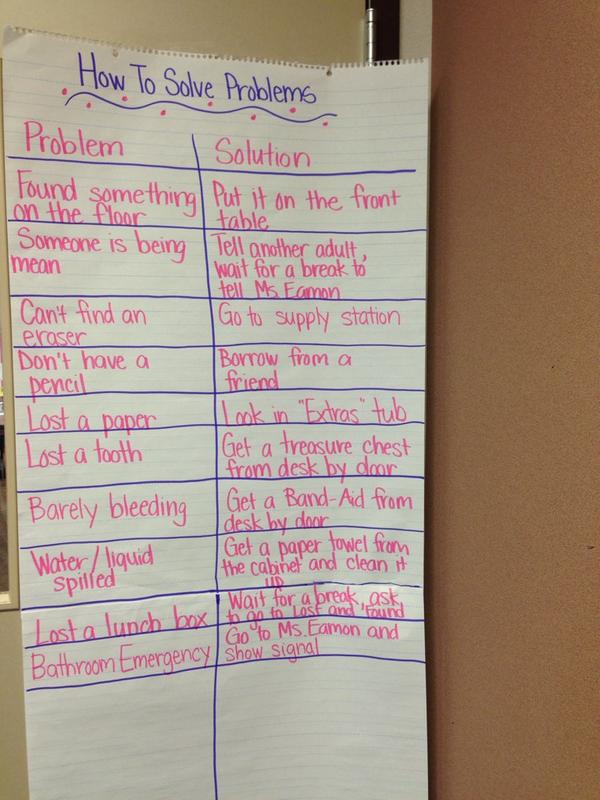 How To Solve Problems
Problem
Solution
Found something
on the floor
Put it on the front
table
Someone is being
mean
Tell another adult,
wait for a break to
tell Ms. Eamon
Can't find an
eraser
Go to supply station
Don't have a
pencil
Borrow from a
friend
Lost a paper
Look in "Extras" tub
Lost a tooth
Get a treasure chest
from desk by door
Barely bleeding
Get a Band-Aid from
desk by door
Water/liquid
spilled
Get a paper towel from
the cabinet and clean it
up
Lost a lunch box
Wait for a break, ask
to go to Lost and Found
Bathroom Emergency
Go to Ms. Eamon and
show signal